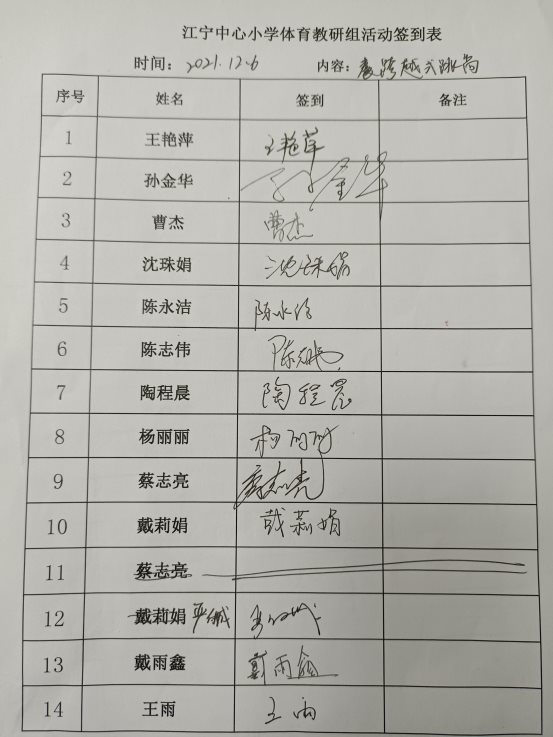 江宁中心小学体育教研组活动签到表
时间：2021.12.6 内容：跨越式跳高
序号 姓名 签到 备注
1 王艳萍 王艳萍
2 孙金华 孙金华
3 曹杰 曹杰
4 沈珠娟 沈珠娟
5 陈永洁 陈永洁
6 陈志伟 陈志伟
7 陶程晨 陶程晨
8 杨丽丽 杨丽丽
9 蔡志亮 蔡志亮
10 戴莉娟 戴莉娟
11 蔡志亮
12 戴莉娟
13 戴雨鑫 戴雨鑫
14 王雨 王雨